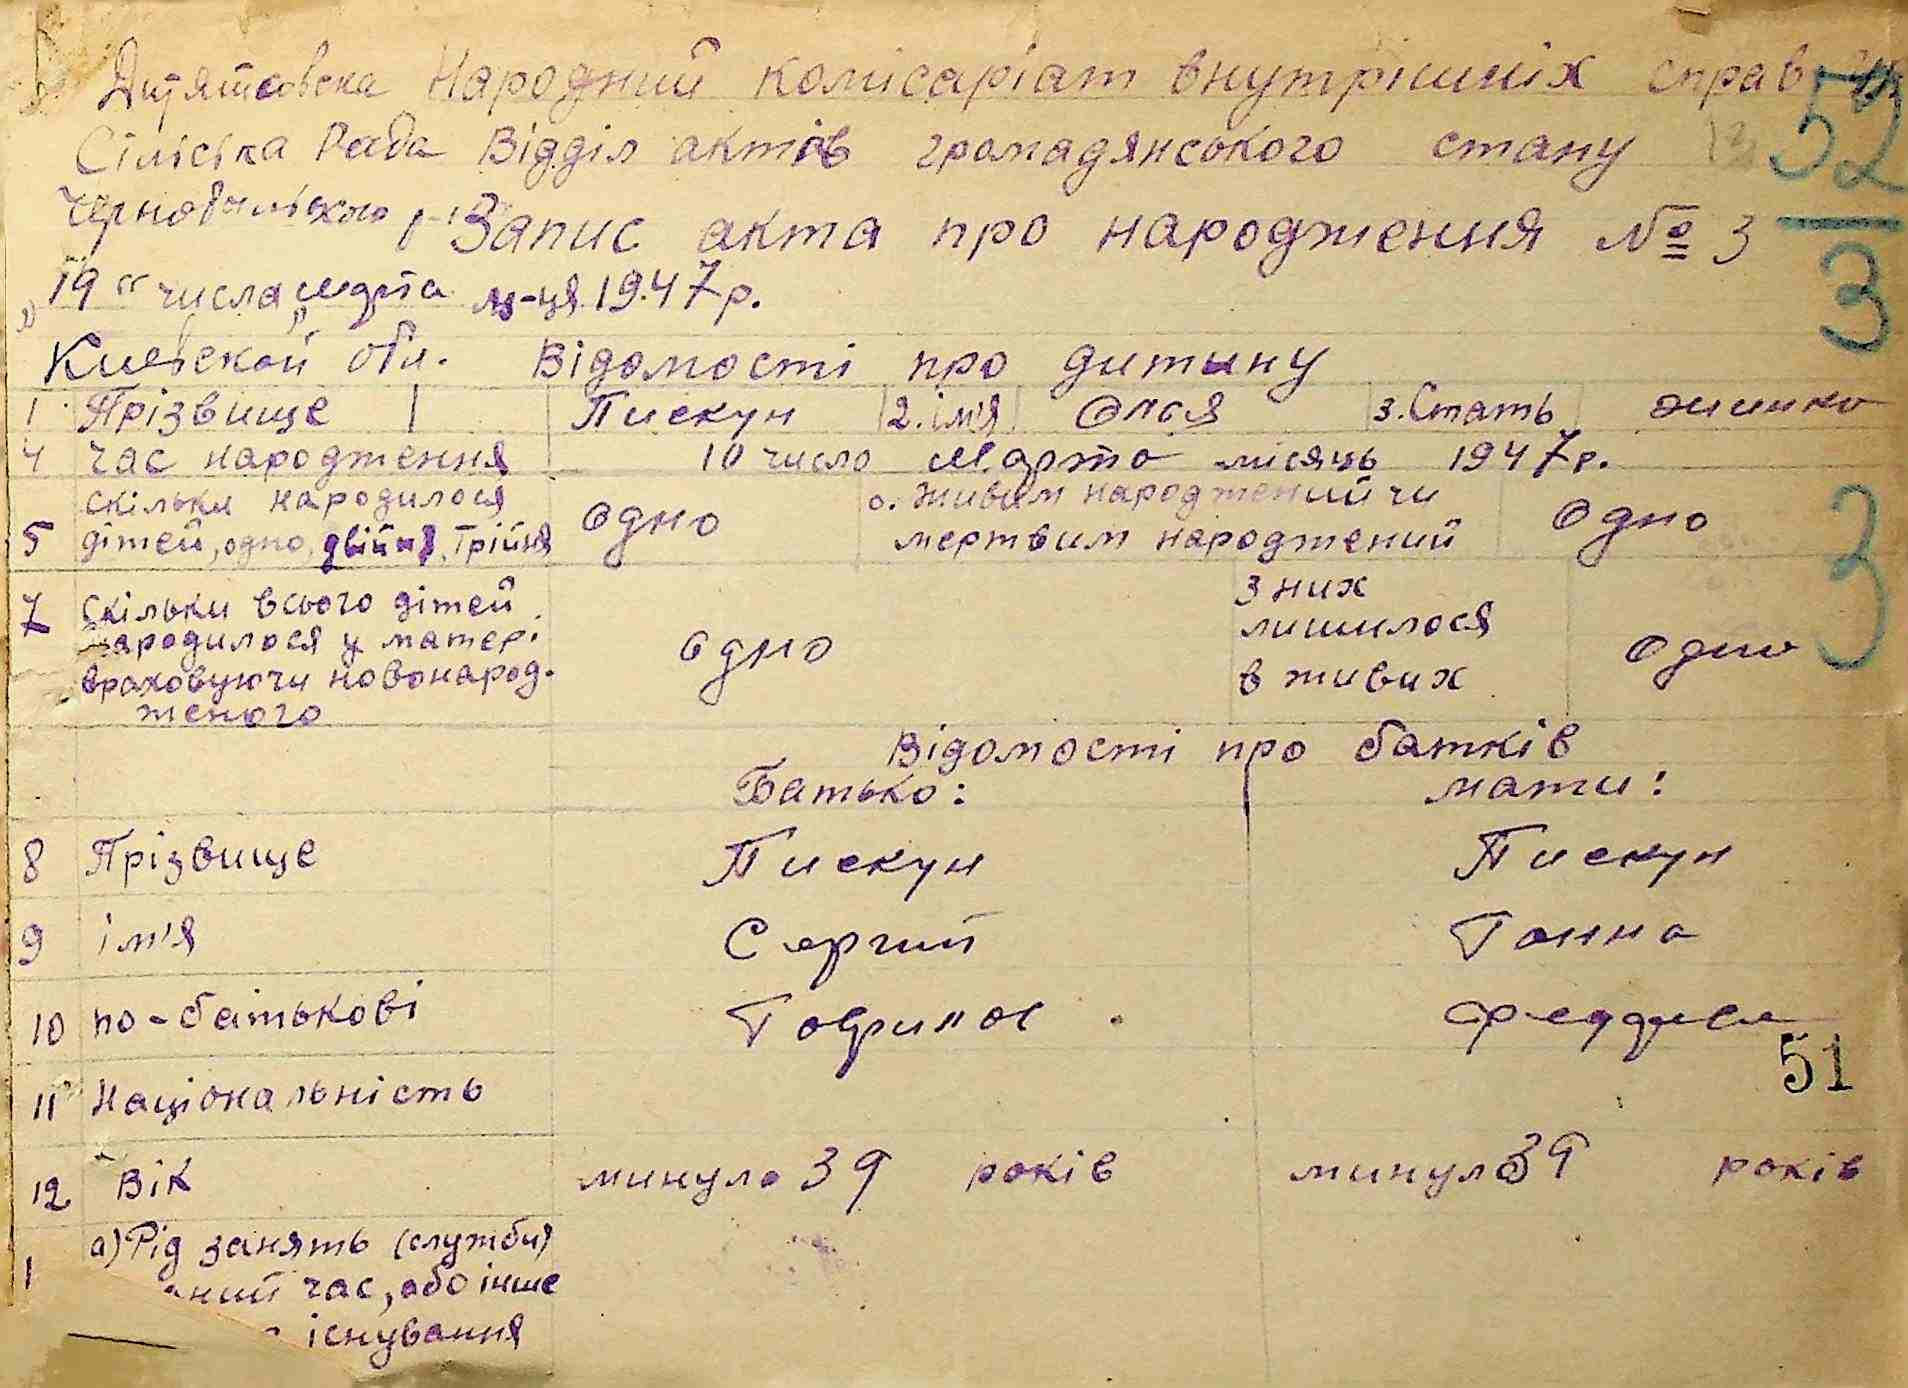 Дитятовска Народний комісаріат внутрішніх справ
Сілíська Рада Відділ актів громадянського стану
Чернобильского р-
Запис акта про народження № 3
52
3
„19“ числа „марта м-ця 1947 р.
Киевской обл. Відомості про дитину
1 Прізвище Пискун 2. ім'я Олся 3. Стать жинка
4 Час народження 10 число Марта місяць 1947 р.
5 скільки народилося дітей, одно, двійня, трійня
Одно
о. живим народжений чи мертвим народжений
Одно
3
7 Скільки всього дітей
народилося у матері
враховуючи новонарод-
женого
Одно
з них
лишилося
в живих
Одно
Відомості про батків
Батько: мати:
8 Прізвище Пискун Пискун
9 ім'я Сергий Ганна
10 по-батькові Гаврилов
51
11 Національність
12 Вік минуло 39 років минуло 39 років
1 а) Рід занять (служби)
час, або інше
існування